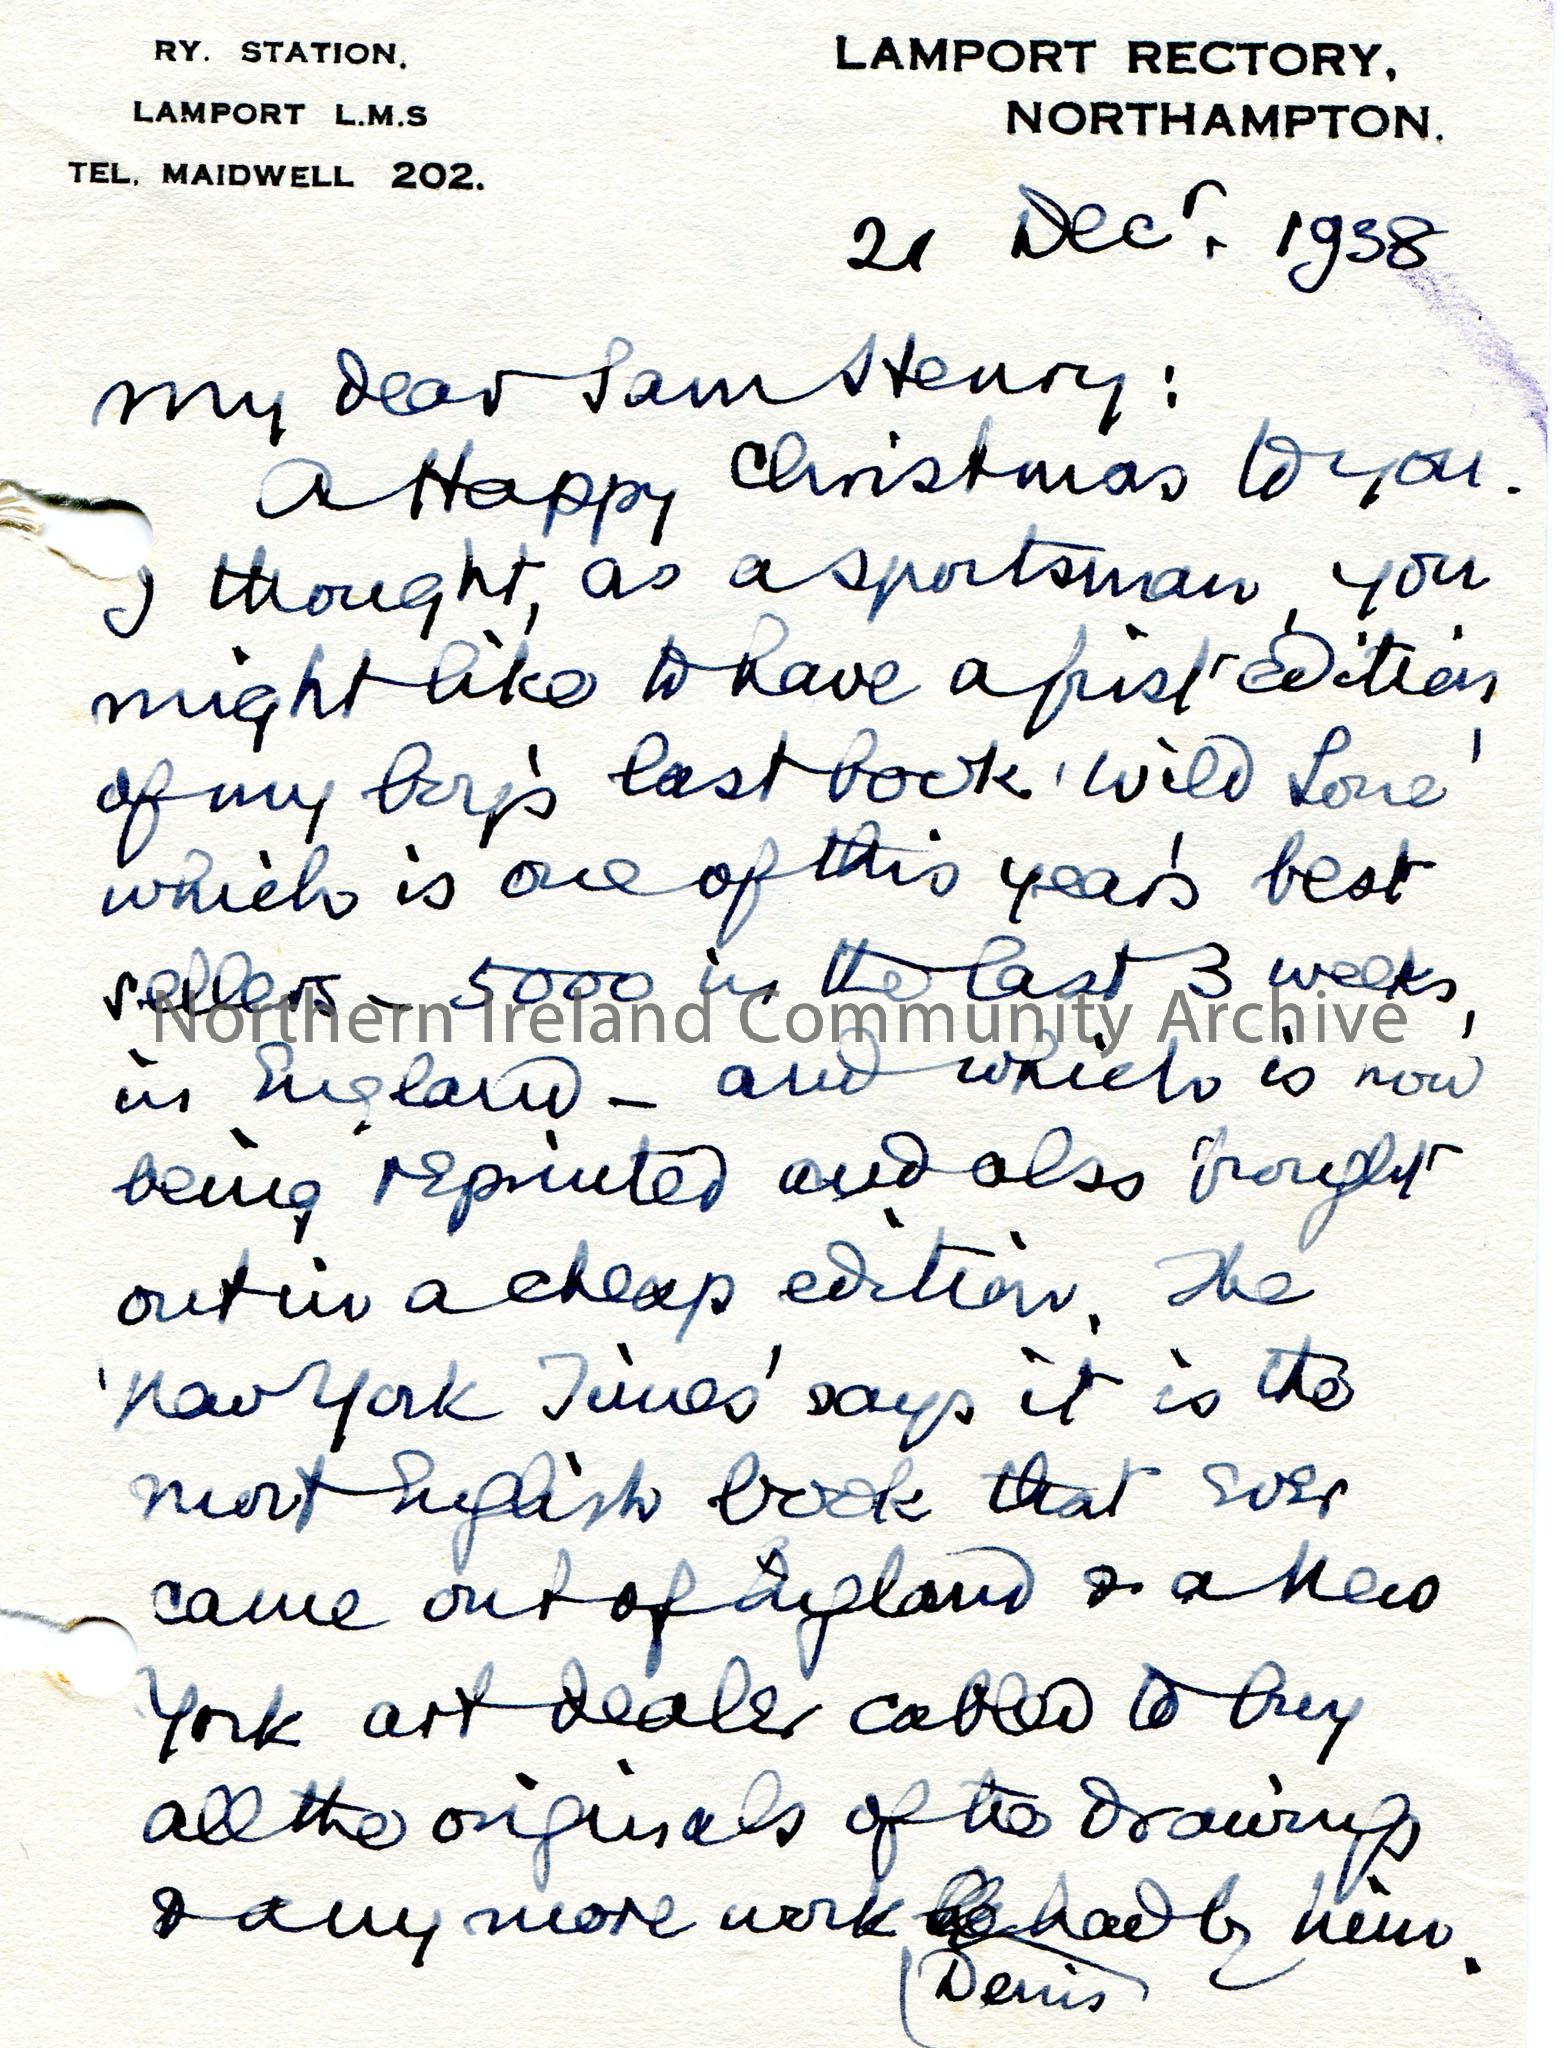 RY. STATION.
LAMPORT L.M.S
TEL. MAIDWELL 202.
LAMPORT RECTORY,
NORTHAMPTON.
21 Decr. 1938
My dear Sam Henry:
A Happy Christmas to you.
I thought, as a sportsman, you
might like to have a first edition
of my boy's last book 'Wild Lone'
which is one of this year's best
sellers – 5000 in the last 3 weeks,
in England – and which is now
being reprinted and also brought
out in a cheap edition. The
'New York Times' says it is the
most English book that ever
came out of England & a New
York art dealer cabled to buy
all the originals of the drawings
& any more work had by him.
(Denis)
Northern Ireland Community Archive